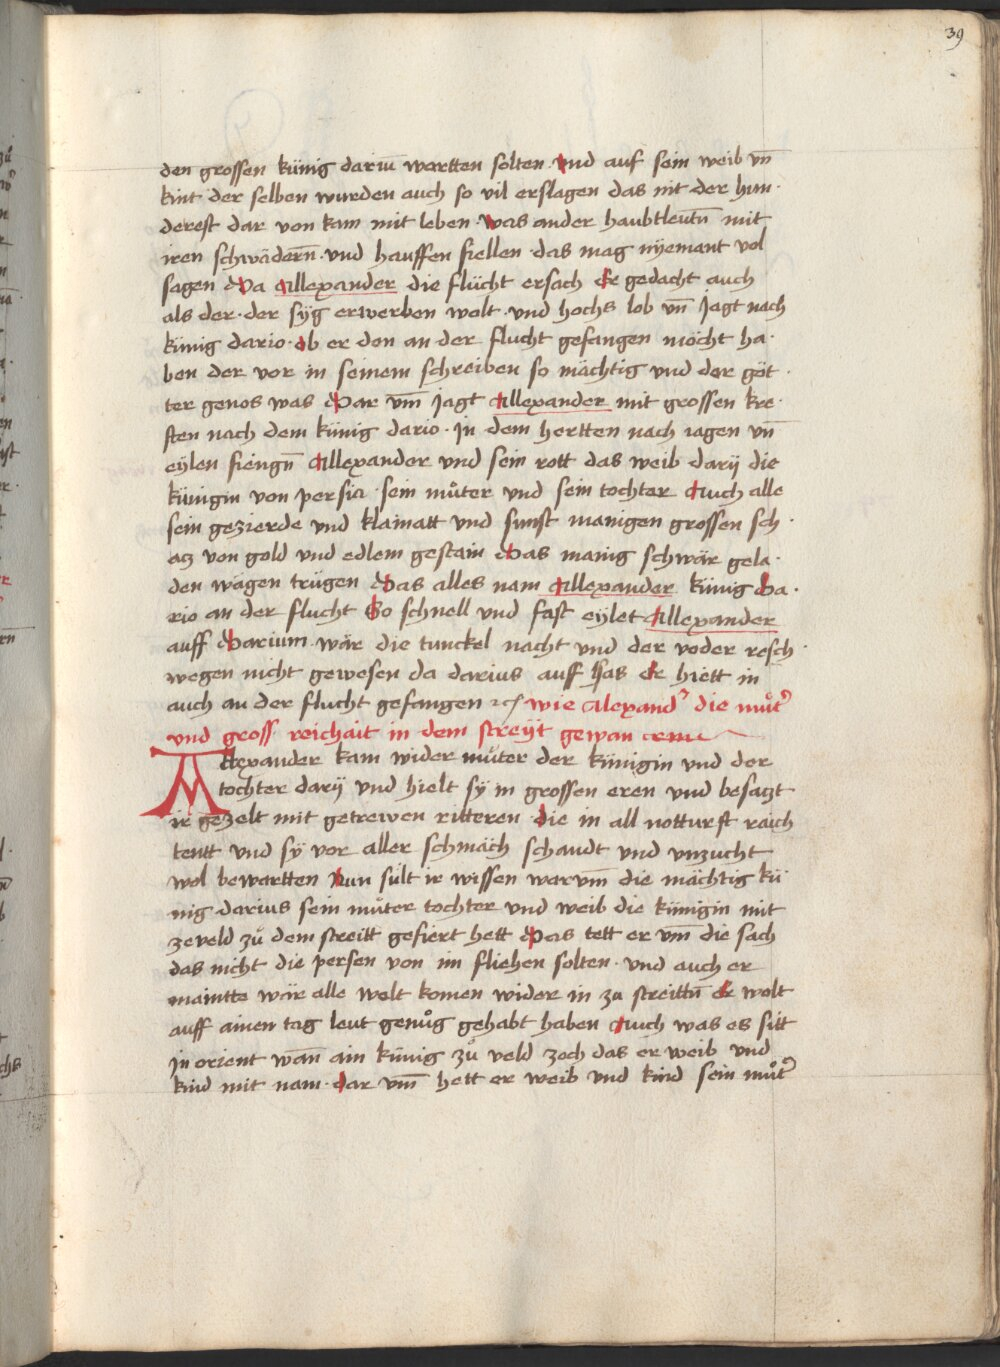 39
den grossen künig dariu͞ wartten solten · und auf sein weib vn͞
kint · der selben wurden auch so vil erslagen das nit der hun ·
derest dar von kam mit leben · was ander haubtleutn͞ mit
iren schwädern͞ · und hauffen fiellen · das mag nÿemant vol
sagen Da Allexander die flücht ersach Er gedacht auch
als der · der syg erwerben wolt · und hochs lob vn͞ Jagt nach
künig dario · ob er don an der flucht gefangen möcht ha ·
ben der vor in seinem schreiben so mächtig und der göt ·
ter genos was Dar vm͞ Jagt Allexander mit grossen kre ·
ften nach dem künig dario · in dem hertten nach iagen vn͞
eylen fiengn͞ Allexander und sein rott das weib darÿ die
künigin von persia · sein mu̍ter und sein tochter Auch alle
sein gezierde und klainatt und sunst manigen grossen sch ·
atz von gold und edlem gestain Das manig schwär gela ·
den wägen trügen Das alles nam Allexander künig Da ·
rio an der flucht So schnell und fast eylet Allexander
auff Darium · wär die tunckel nacht und der voder resch ·
wegen nicht gewesen da darius auff sas Er hiett in
auch an der flucht gefangen ⁊c̃ wie Alexand᾽ die mu̍t᾽
und gross reichait in dem streyt gewan
Allexander kam wider mu̍ter der künigin und der
tochter darÿ und hielt sÿ in grossen eren und besatzt
ir gezelt mit getrewen ritteren · die in all notturft raich
tentt und sÿ vor aller schmäch schandt und vnzucht
wol bewartten Nun sült ir wissen warvm͞ die mächtig kü
nig darius sein mu̍ter tochter und weib die künigin mit
ze veld zu̍ dem streitt gefiert hett Das tett er vm͞ die sach
das nicht die persen von im fliehen solten · und auch er
maintte wär alle welt komen wider in zu streittn͞ Er wolt
auff ainen tag leut genu̍g gehabt haben Auch was es sitt
in orient wan͞ ain künig zu̍ veld zoch das er weib und
kind mit nam · dar vm͞ hett er weib und kind sein mu̍t᾽